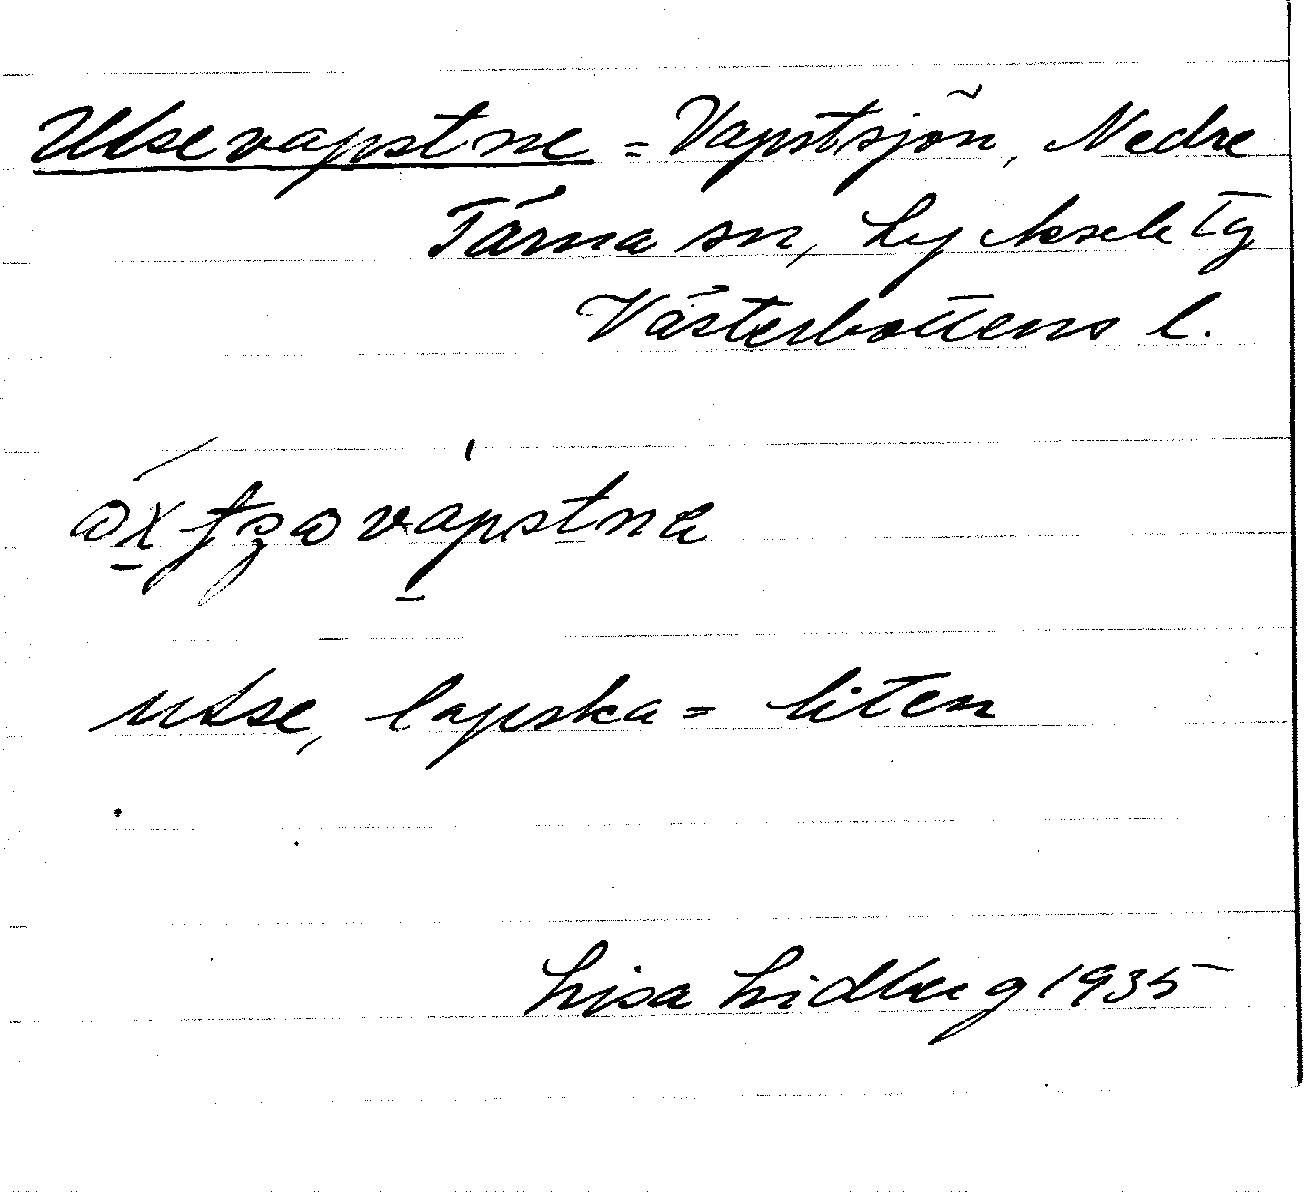 Utsevapstne = Vapstsjön, Nedre
Tärna sn, Lycksele tg
Västerbottens l.
utse, lapska = liten
Lisa Lidberg 1935